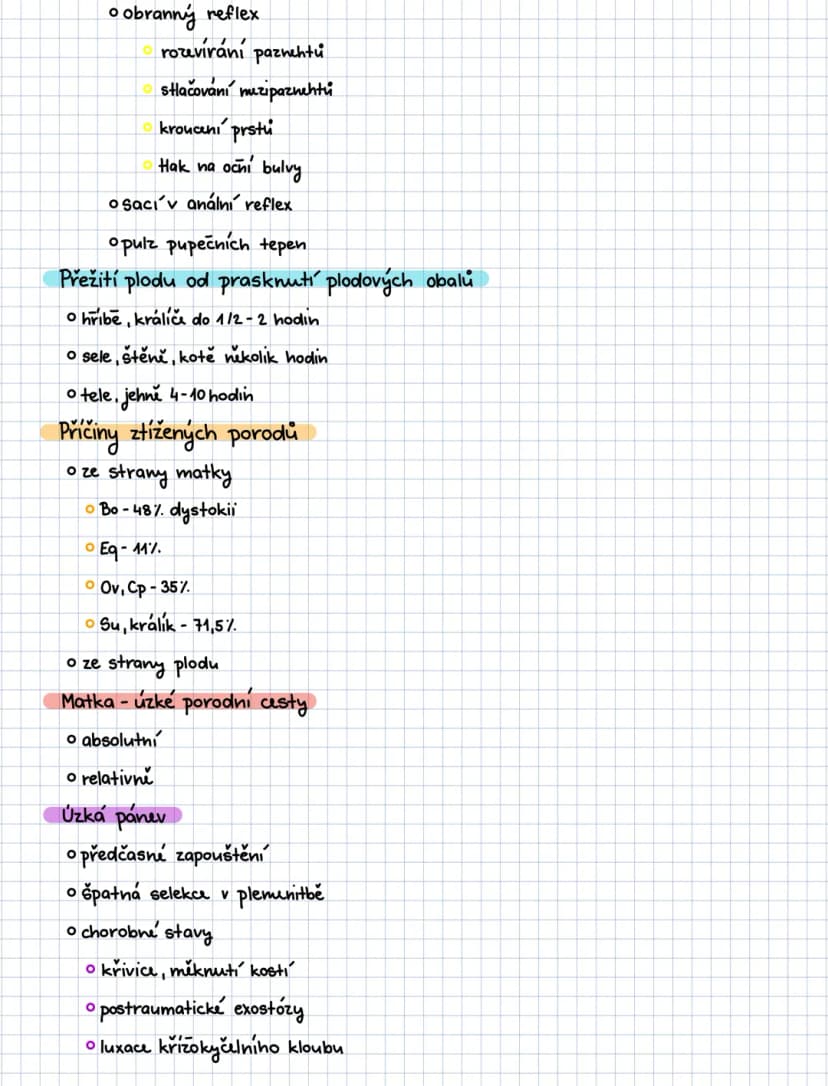 obranný reflex
rozevírání paznehtů
stlačování mezipaznehtí
kroucení prstů
tlak na oční bulvy
sací v anální reflex
pulz pupečních tepen
Přežití plodu od prasknutí plodových obalů
hříbě, králíče do 1/2 - 2 hodin
sele, štěně, kotě několik hodin
tele, jehně 4-10 hodin
Příčiny ztížených porodů
ze strany matky
Bo - 48% dystokií
Eq - 11%
Ov, Cp - 35%
Su, králík - 71,5%
ze strany plodu
Matka - úzké porodní cesty
absolutní
relativně
Úzká pánev
předčasné zapouštění
špatná selekce v plemenitbě
chorobné stavy
křivice, měknutí kostí
postraumatické exostózy
luxace křížokyčelního kloubu